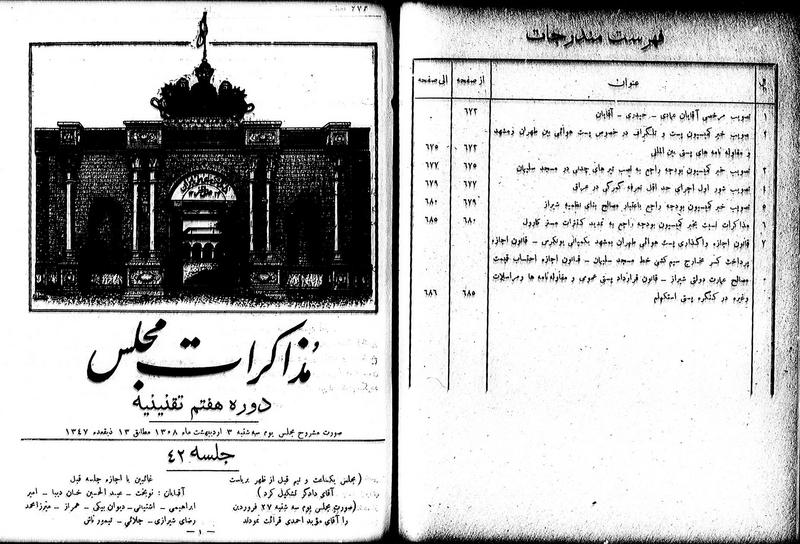 فهرست مندرجات
عنوان از صفحه الی صفحه
۱ تصویب مرخصی آقایان عبادی - حیدری - آقایان ۶۷۲
۲ تصویب خبر کمیسیون پست و تلگراف در خصوص پست هوائی بین طهران و مشهد
و مقاوله نامه های پستی بین المللی ۶۷۲ ۶۷۵
۳ تصویب خبر کمیسیون بودجه راجع به نصب تیرهای چدنی در مسجد سلیمان ۶۷۵ ۶۷۷
۴ تصویب شور اول اجرای حد اقل تعرفه گمرکی در عراق ۶۷۷ ۶۷۹
۵ تصویب خبر کمیسیون بودجه راجع باعتبار مصالح بنای نظمیه شیراز ۶۷۹ ۶۸۰
۶ مذاکرات نسبت بخبر کمیسیون بودجه راجع به تمدید کنترات مستر کارول ۶۸۰ ۶۸۵
۷ قانون اجازه واگذاری پست هوائی طهران بمشهد بکمپانی یونکرس - قانون اجازه
پرداخت کسر مخارج سیم کشی خط مسجد سلیمان - قانون اجازه احتساب قیمت
مصالح عمارت دولتی شیراز - قانون قرارداد پستی عمومی و مقاوله نامه ها و مراسلات
وغیره در کنگره پستی استکهلم ۶۸۵ ۶۸۶
مذاکرات مجلس
دوره هفتم تقنینیه
صورت مشروح مجلس یوم سه شنبه ۳ اردیبهشت ماه ۱۳۰۸ مطابق ۱۳ ذیقعده ۱۳۴۷
جلسه ۴۲
(مجلس یکساعت و نیم قبل از ظهر بریاست
آقای دادگر تشکیل گردید)
(صورت مجلس یوم سه شنبه ۲۷ فروردین
را آقای مؤید احمدی قرائت نمودند
غائبین با اجازه جلسه قبل
آقایان : نوبخت - عبد الحسین خان دیبا - امیر
ابراهیمی - آشتیانی - دیوان بیگی - همراز - میرزا محمد
رضای شیرازی - جلائی - تیمور تاش
- ۱ -